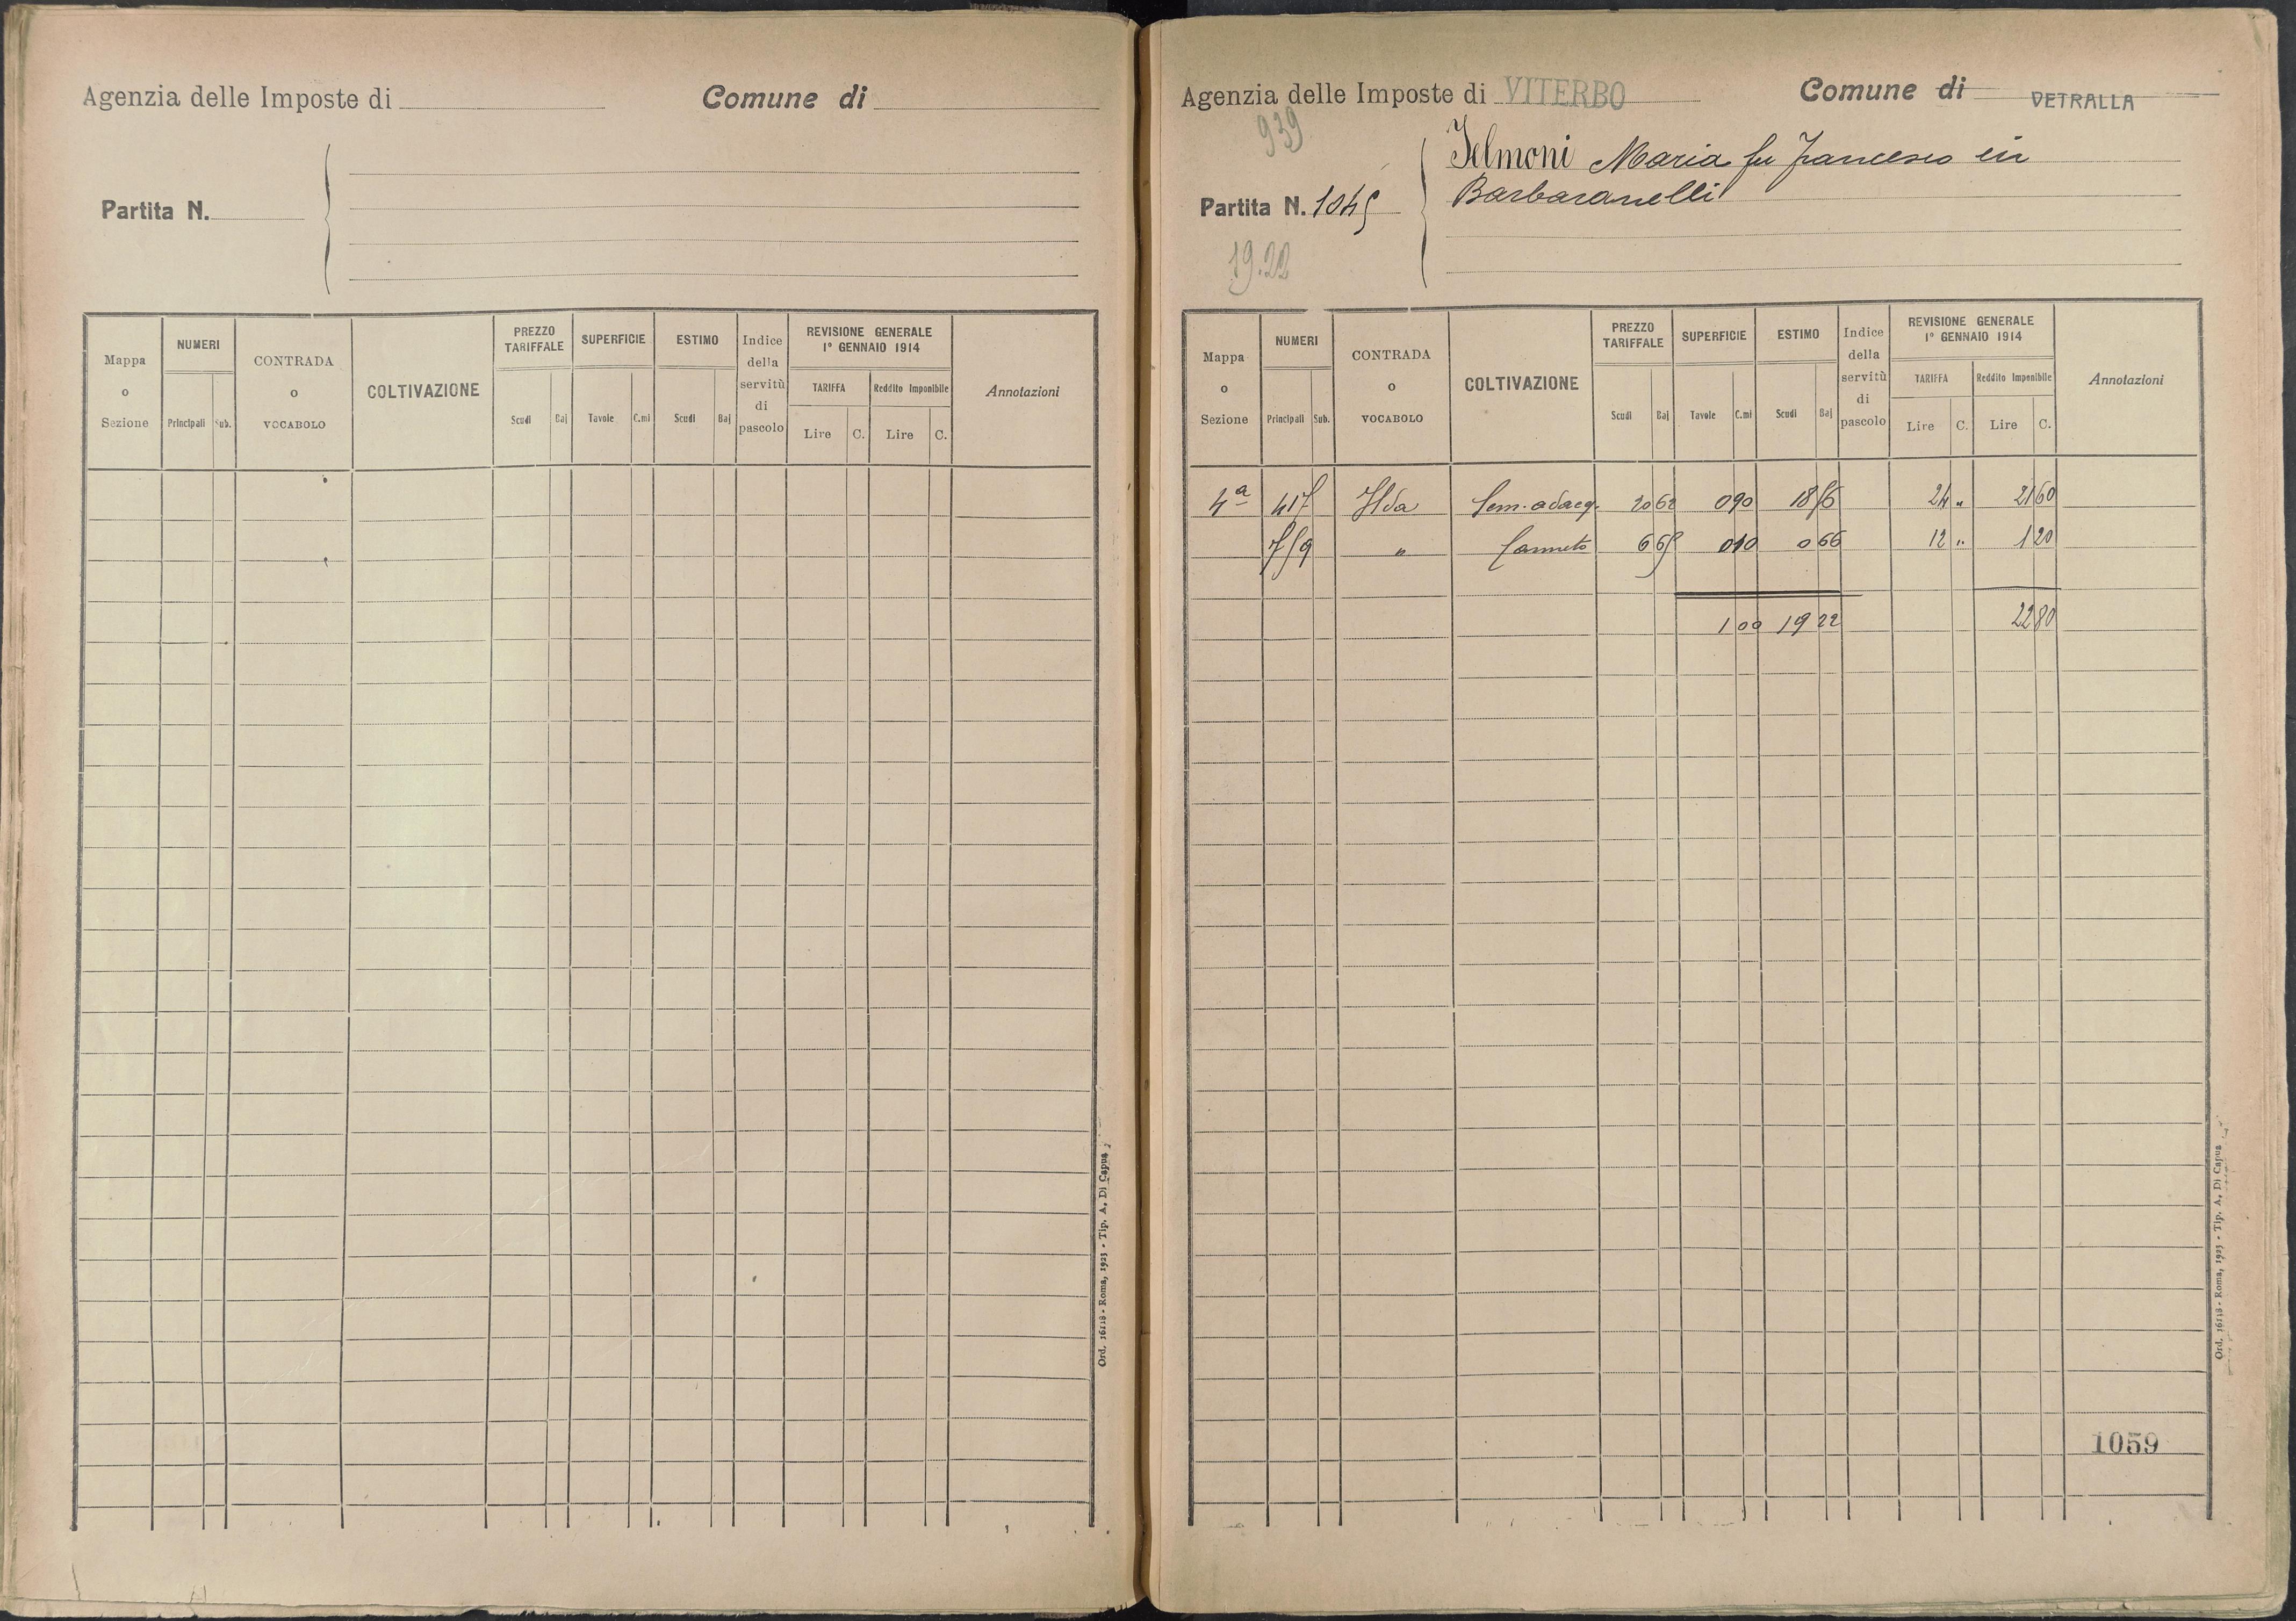 Agenzia delle Imposte di Comune di
Partita N.
Mappa o Sezione
NUMERI
Principali Sub.
CONTRADA o VOCABOLO
COLTIVAZIONE
PREZZO TARIFFALE
Scudi Baj
SUPERFICIE
Tavole C.mi
ESTIMO
Scudi Baj
Indice della servitù di pascolo
REVISIONE GENERALE
1° GENNAIO 1914
TARIFFA Reddito Imponibile
Lire C. Lire C.
Annotazioni
Ord. 16118 - Roma, 1923 - Tip. A. Di Capua
Agenzia delle Imposte di VITERBO Comune di VETRALLA
939
Maria fu Francesco in
Partita N. 1045 Barbaranelli
19.22
Mappa o Sezione
NUMERI
Principali Sub.
CONTRADA o VOCABOLO
COLTIVAZIONE
PREZZO TARIFFALE
Scudi Baj
SUPERFICIE
Tavole C.mi
ESTIMO
Scudi Baj
Indice della servitù di pascolo
REVISIONE GENERALE
1° GENNAIO 1914
TARIFFA Reddito Imponibile
Lire C. Lire C.
Annotazioni
4ª 417 Sem. adacq. 20 62 0 90 18 56 24 " 21 60
759 " Canneto 6 65 0 10 0 66 12 " 1 20
1 00 19 22 22 80
1059
Ord. 16118 - Roma, 1923 - Tip. A. Di Capua